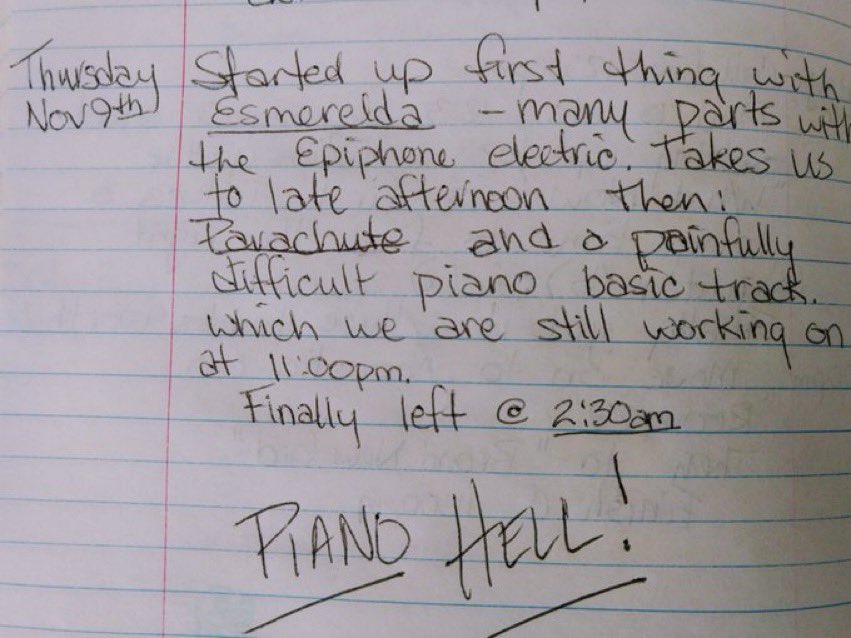 Thursday Started up first thing with
Nov 9th Esmerelda - many parts with
the Epiphone electric. Takes us
to late afternoon then:
Parachute and a painfully
difficult piano basic track.
which we are still working on
at 11:00pm.
Finally left @ 2:30am
PIANO HELL!